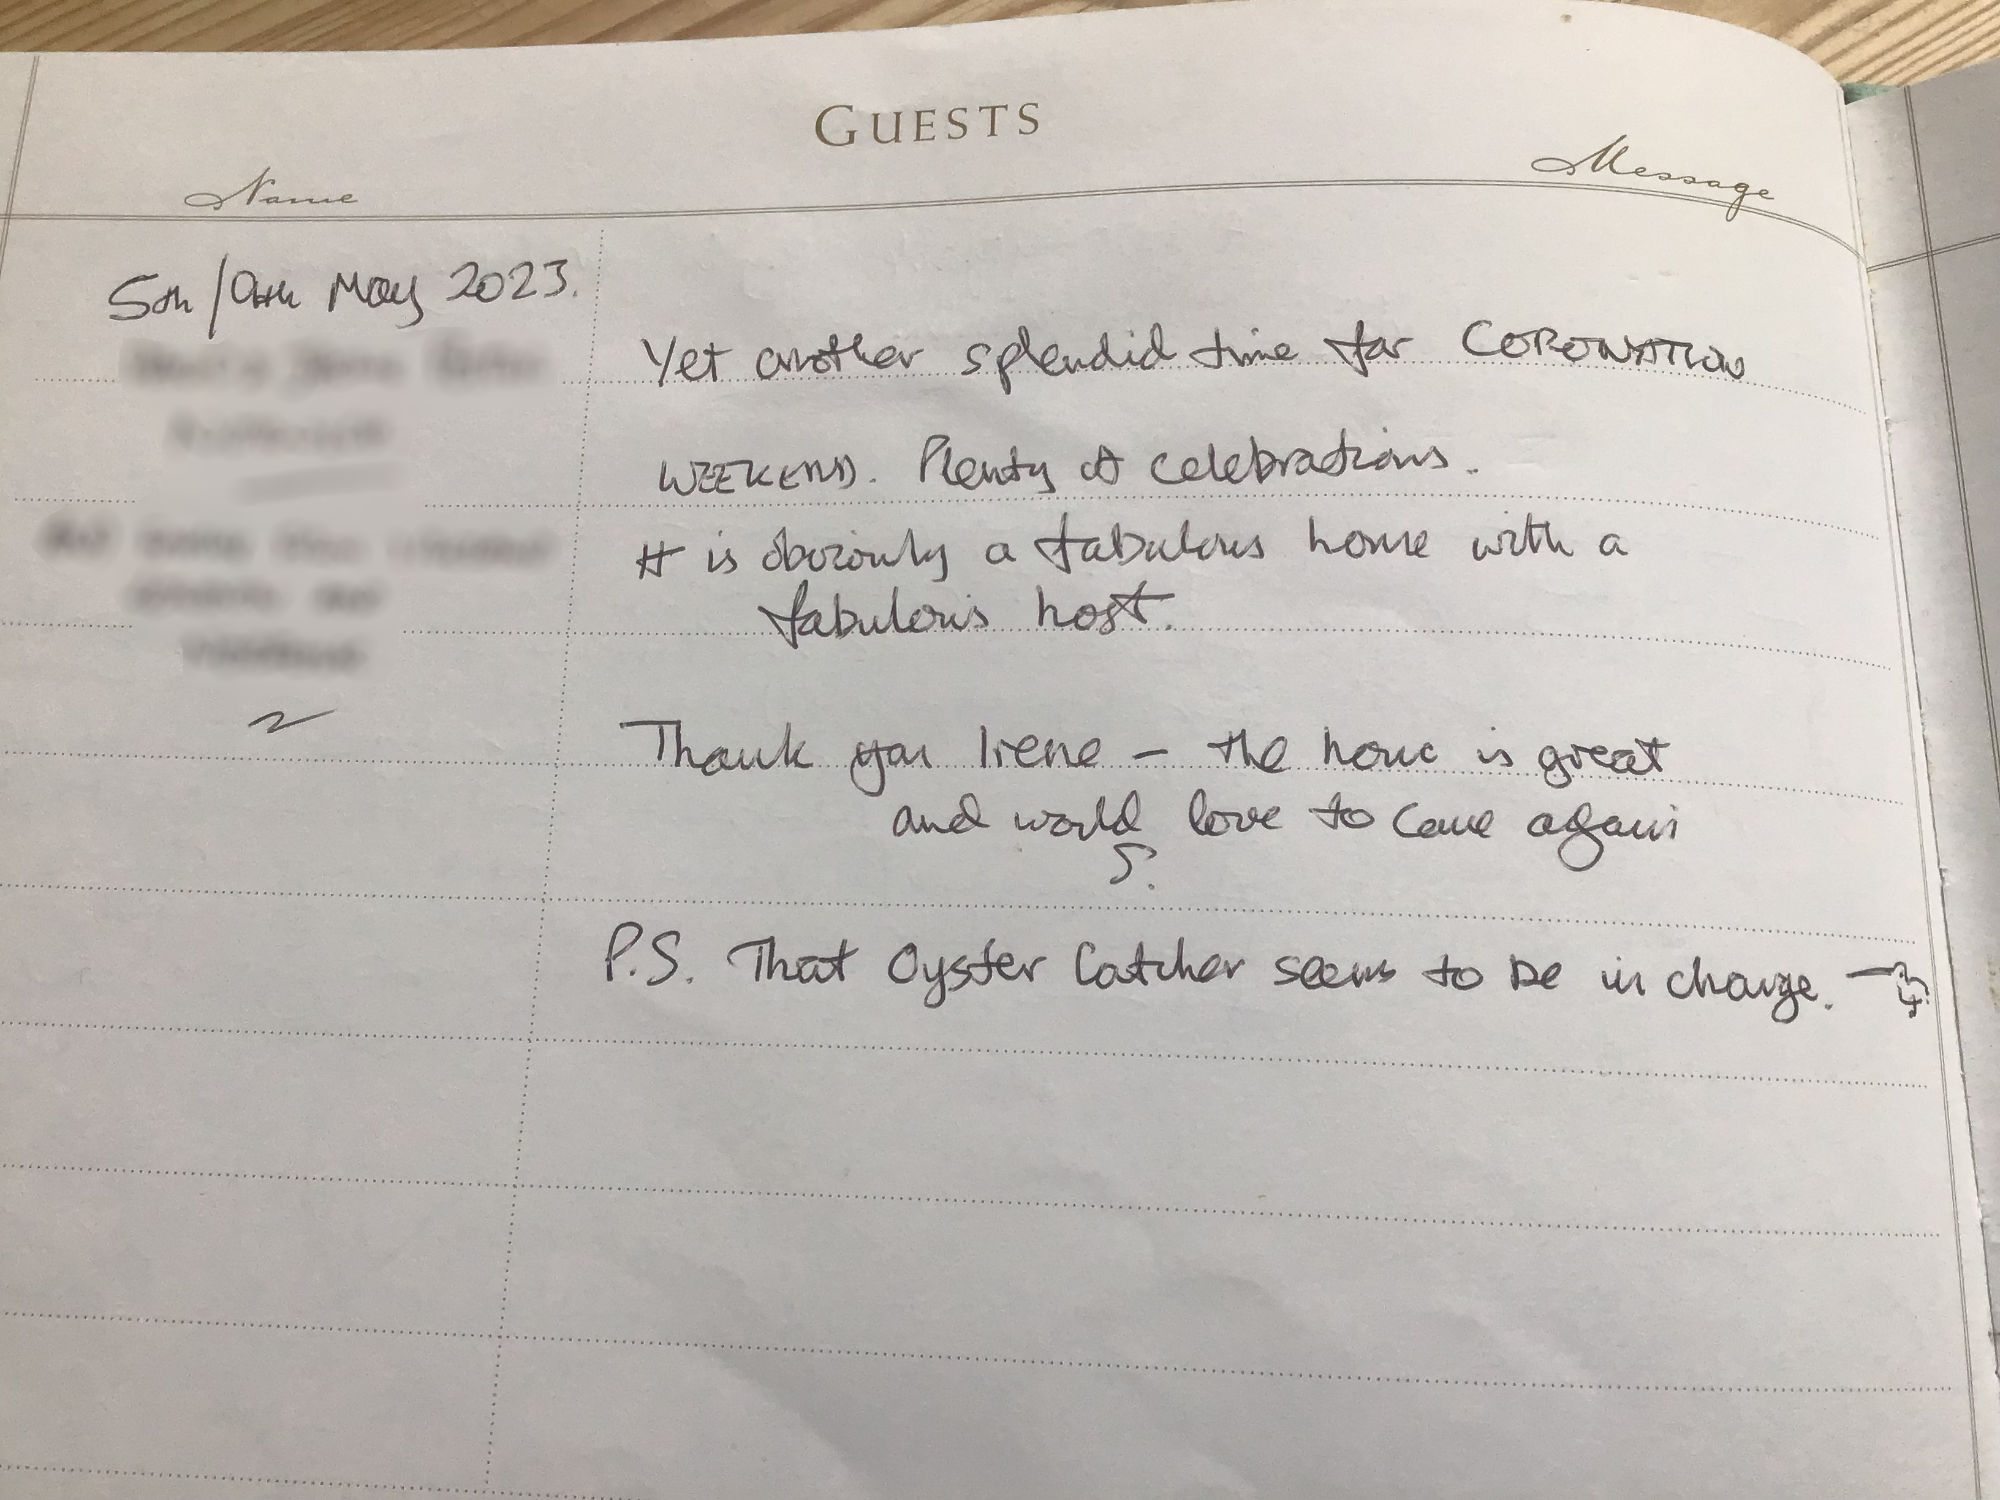 GUESTS
Name
Message
5th / May 2023.
Yet another splendid time for CORONATION
WEEKEND. Plenty of celebrations.
It is obviously a fabulous home with a
fabulous host.
Thank you Irene – the home is great
and would love to come again
S.
P.S. That Oyster Catcher seems to be in charge.